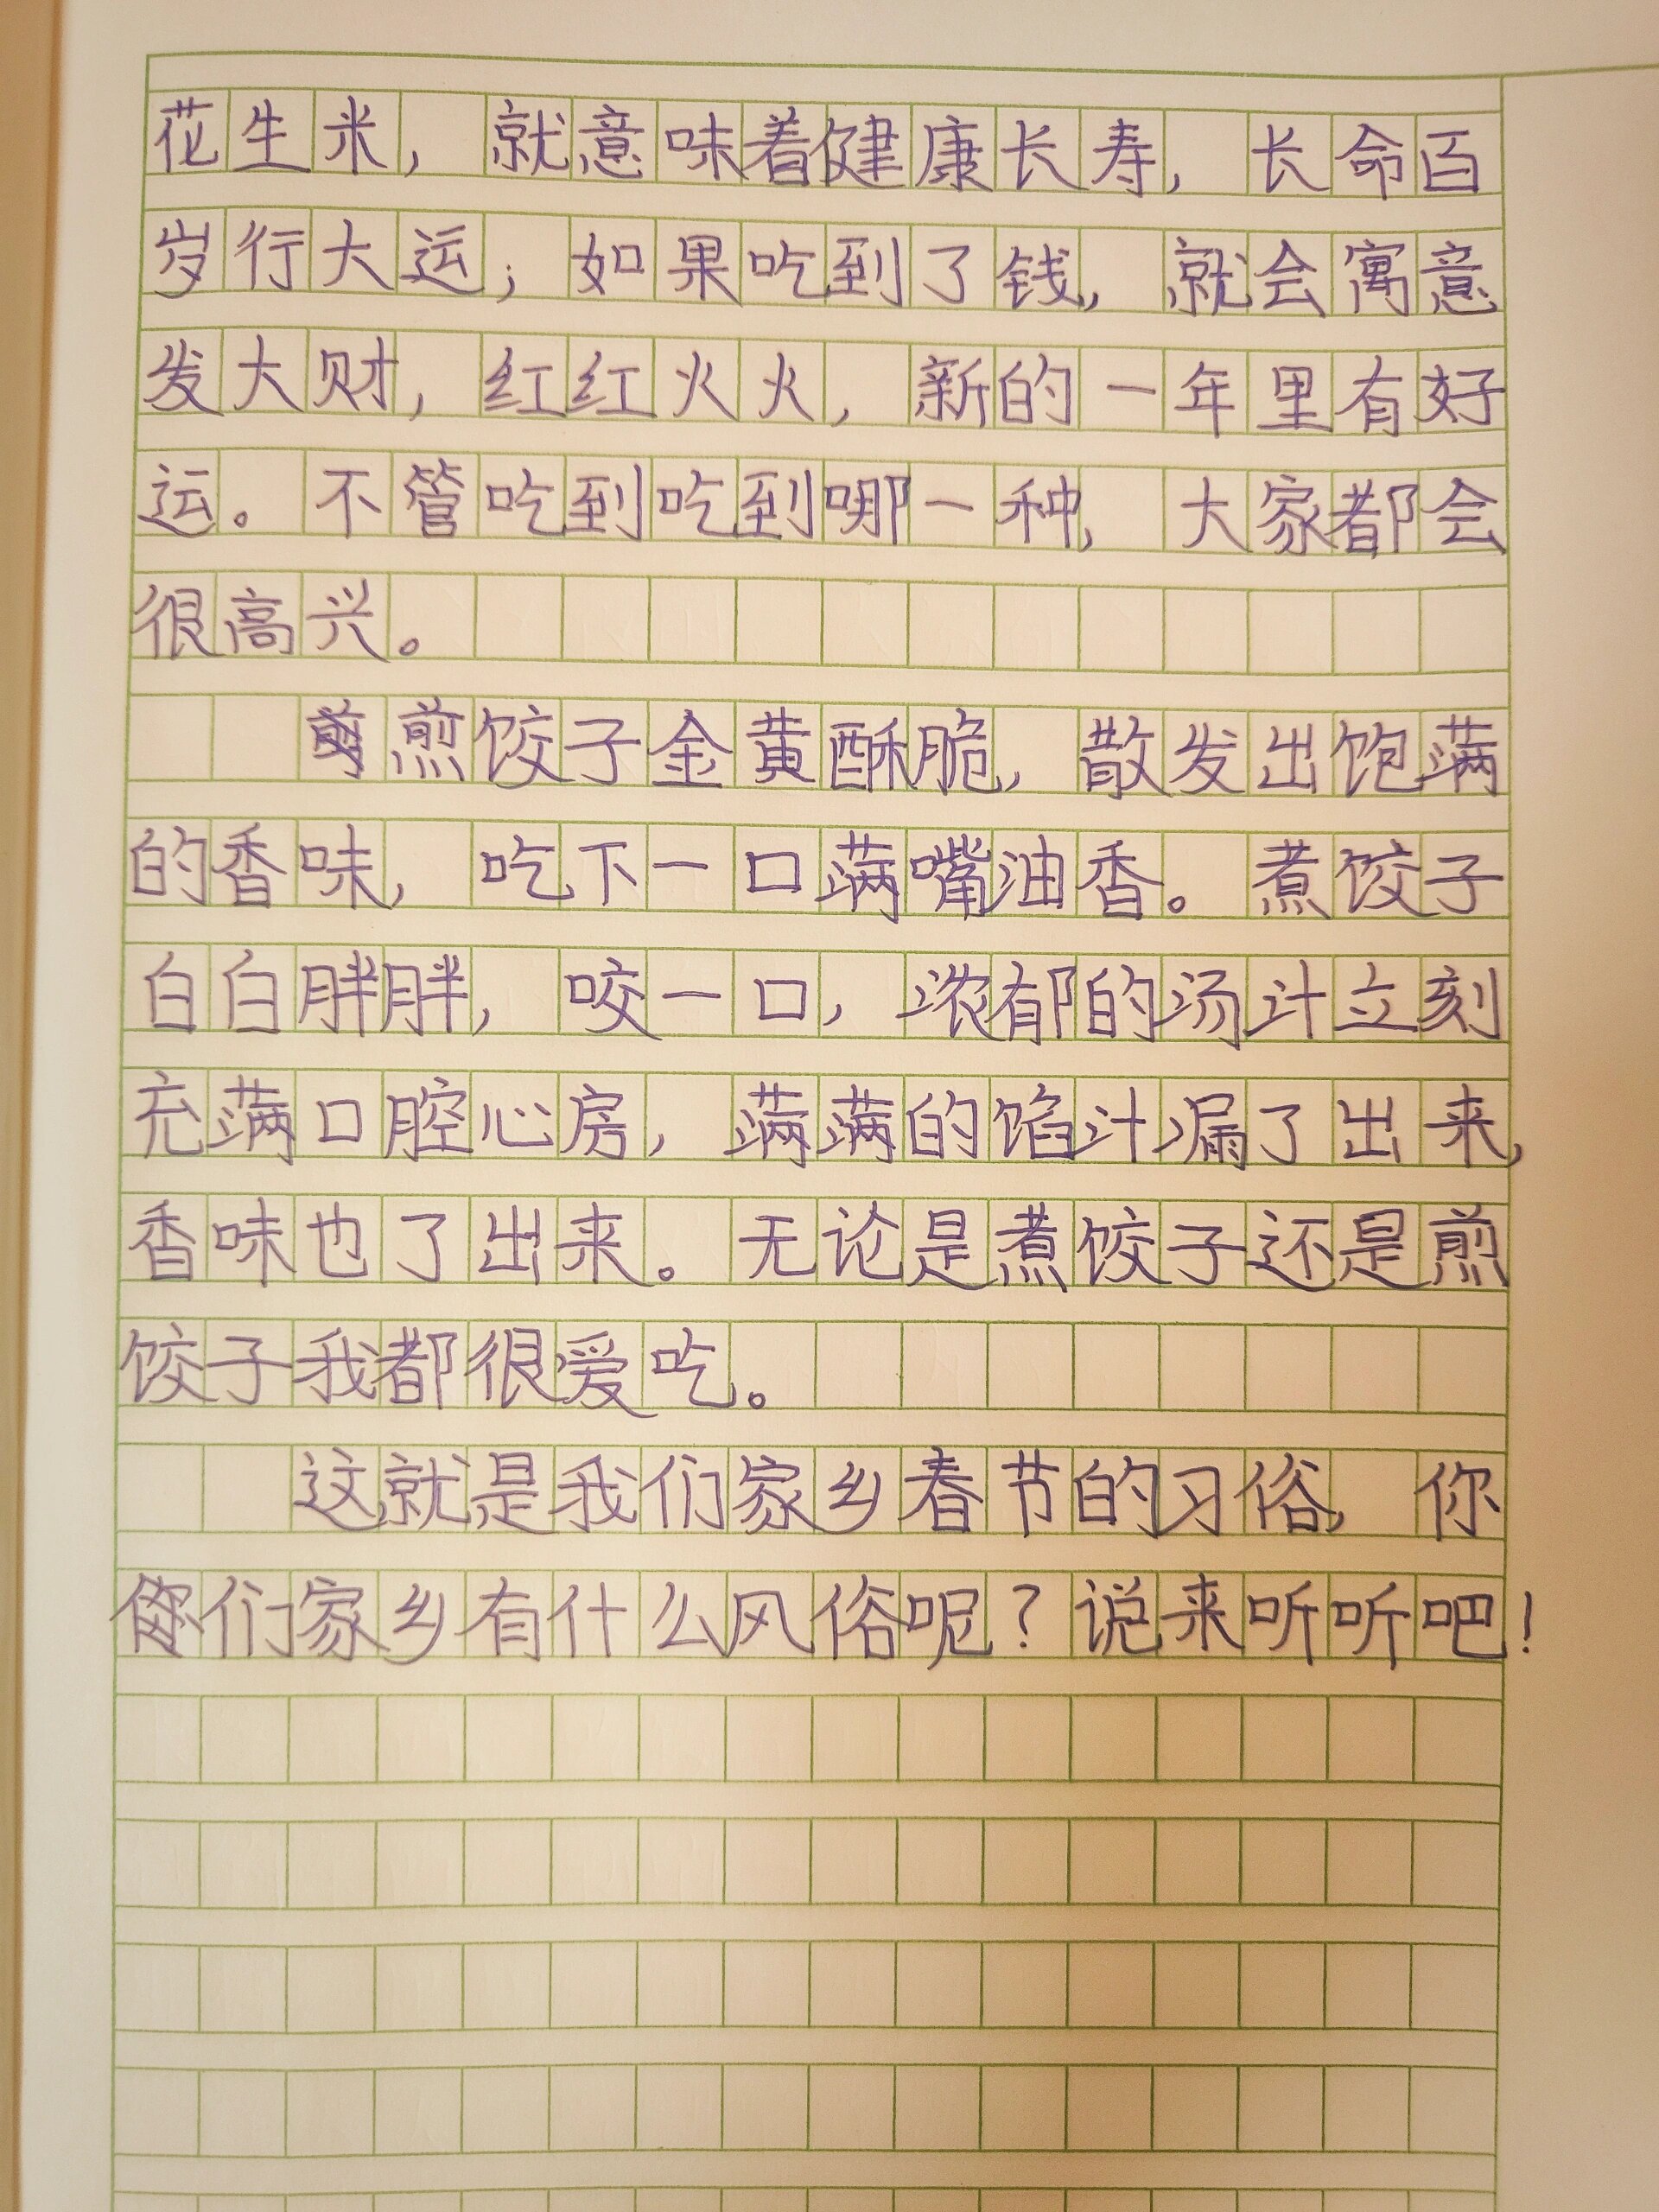 花生米，就意味着健康长寿，长命百
岁行大运；如果吃到了钱，就会寓意
发大财，红红火火，新的一年里有好
运。不管吃到吃到哪一种，大家都会
很高兴。
煎饺子金黄酥脆，散发出饱满
的香味，吃下一口满嘴油香。煮饺子
白白胖胖，咬一口，浓郁的汤汁立刻
充满口腔心房，满满的馅汁漏了出来，
香味也了出来。无论是煮饺子还是煎
饺子我都很爱吃。
这就是我们家乡春节的习俗，你
们家乡有什么风俗呢？说来听听吧！